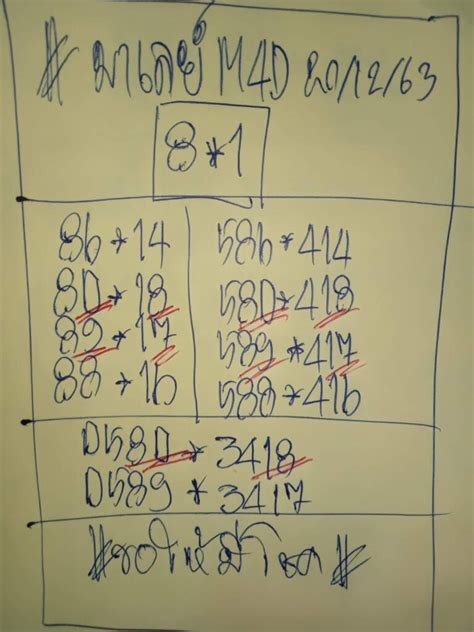 # มาเลย์ M4D 20/12/63
8*1
86*14 586*414
80*18 580*418
89*17 589*417
88*16 588*416
0580*3418
0589*3417
#ขอให้มีโชค#